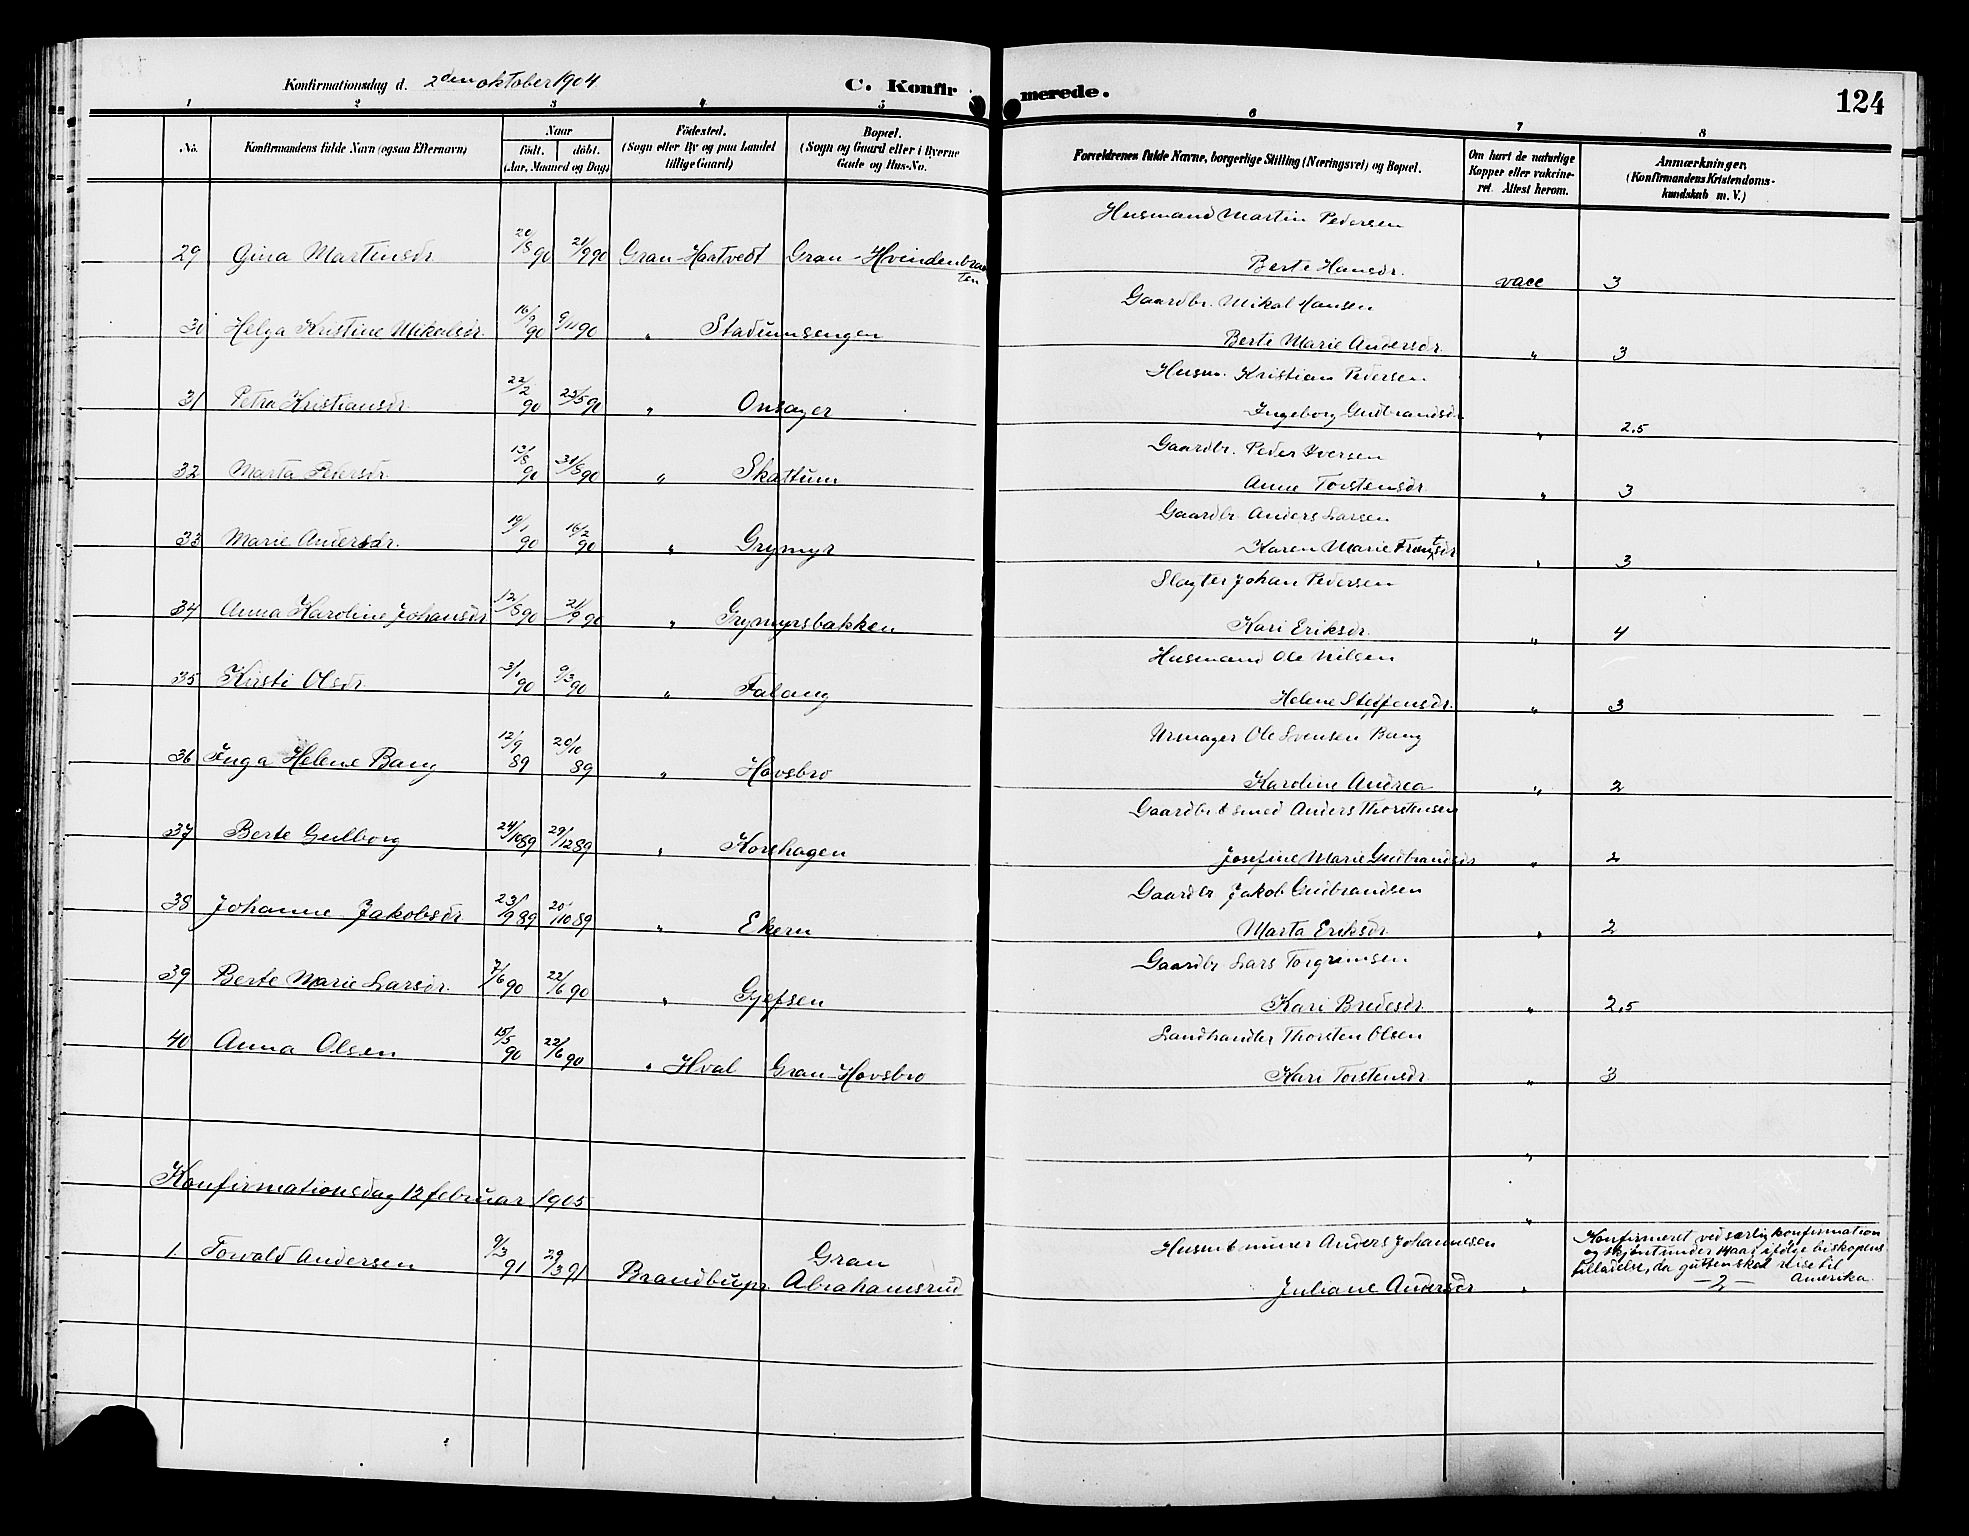 Konfirmationsdag d. 2den oktober 1904
C. Konfirmerede.
124
1 2 3 4 5 6 7 8
No.
Konfirmandens fulde Navn (ogsaa Efternavn)
Naar
födt. döbt.
(Aar, Maaned og Dag)
Födested.
(Sogn eller By og paa Landet
tillige Gaard)
Bopæl.
(Sogn og Gaard eller i Byerne
Gade og Hus-No.
Forældrenes fulde Navne, borgerlige Stilling (Næringsvei) og Bopæl.
Om havt de naturlige
Kopper eller vakcine-
ret. Attest herom.
Anmærkninger.
(Konfirmandens Kristendoms-
kundskab m. V.)
Husmand Martin Pedersen
29 Gina Martinsdr. 20/8 90 21/9 90 Gran-Hartvedt Gran-Hvindenbraa-
ten
Berte Hansdr. vacc 3
Gaardbr. Mikal Hansen
30 Helga Kristine Mikalsdr. 16/9 90 9/11 90 " Stadumsengen
Berte Marie Andersdr. " 3
Husm. Kristian Pedersen
31 Petra Kristiansdr. 22/2 90 25/5 90 " Onsager
Ingeborg Gudbrandsdr. " 2.5
Gaardbr. Peder Iversen
32 Marta Pedersdr. 13/8 90 31/8 90 " Skattum
Anne Torstensdr. " 3
Gaardbr. Anders Larsen
33 Marie Andersdr. 19/1 90 16/2 90 " Grymyr
Karen Marie Frantsdr. " 3
Slagter Johan Pedersen
34 Anna Karoline Johansdr. 12/8 90 21/9 90 " Grymyrsbakken
Kari Eriksdr. " 4
Husmand Ole Nilsen
35 Kirsti Olsdr. 3/1 90 9/3 90 " Falang
Helene Steffensdr. " 3
Urmager Ole Svensen Bang
36 Inga Helene Bang 12/9 89 20/10 89 " Hovsbro
Karoline Andrea " 2
Gaardbr & smed Anders Thorstensen
37 Berte Gulborg 24/10 89 29/12 89 " Korshagen
Josefine Marie Gudbrandsdr " 2
Gaardbr Jakob Gudbrandsen
38 Johanne Jakobsdr. 23/9 89 20/10 89 " Ekern
Marta Eriksdr. " 2
Gaardbr. Lars Torgrimsen
39 Berte Marie Larsdr. 7/6 90 22/6 90 " Gjefsen
Kari Bredesdr. " 2,5
Landhandler Thorsten Olsen
40 Anna Olsen 15/5 90 22/6 90 " Hval Gran-Hovsbro
Kari Torstensdr. " 3
"
Konfirmationsdag 12 februar 1905
"
1 Torvald Andersen 9/3 91 29/3 91 Brandbu Gran
Abrahamsrud
Husm & murer Anders Johannesen
Juliane Andersdr "
Konfirmeret ved særlig konfirmation
og skjönt under 14 aar ifölge biskopens
tilladelse, da gutten skal reise til
— 2 — Amerika.